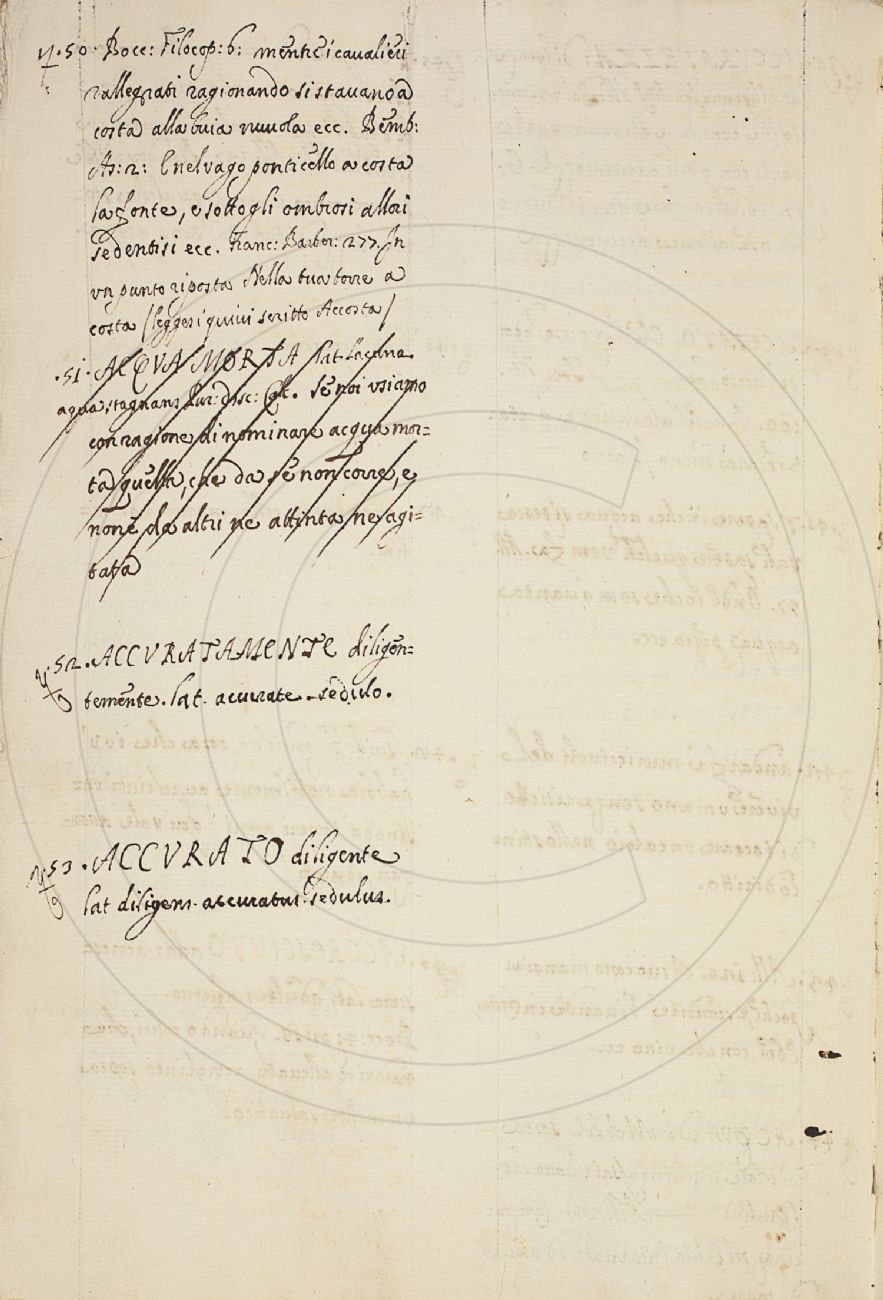 .50. Bocc: Filocop: 6: mentre i cavalieri
rallegrati ragionando si stavano a
costa alla buia nuvola ecc. Bemb:
As: 2: E nel vago ponticello a costa
la fonte, e sotto gli ombrosi allori
sedentisi ecc. Franc: Barber: 277. In
un punto riposta Nella tua torre a
costa /leggesi quivi scritto Accosta/
.51. ACQVA MORTA Lat. Lacuna.
aqua stagnans disc: Se noi usiamo
con ragione di nominare acqua mor=
ta quella, che da se non corre, e
non è da altri ne attinta ne agi=
tata
.52. ACCVRATAMENTE diligen=
temente. lat. accurate. sedulo.
53. ACCVRATO diligente
lat diligens. accuratus. sedulus.